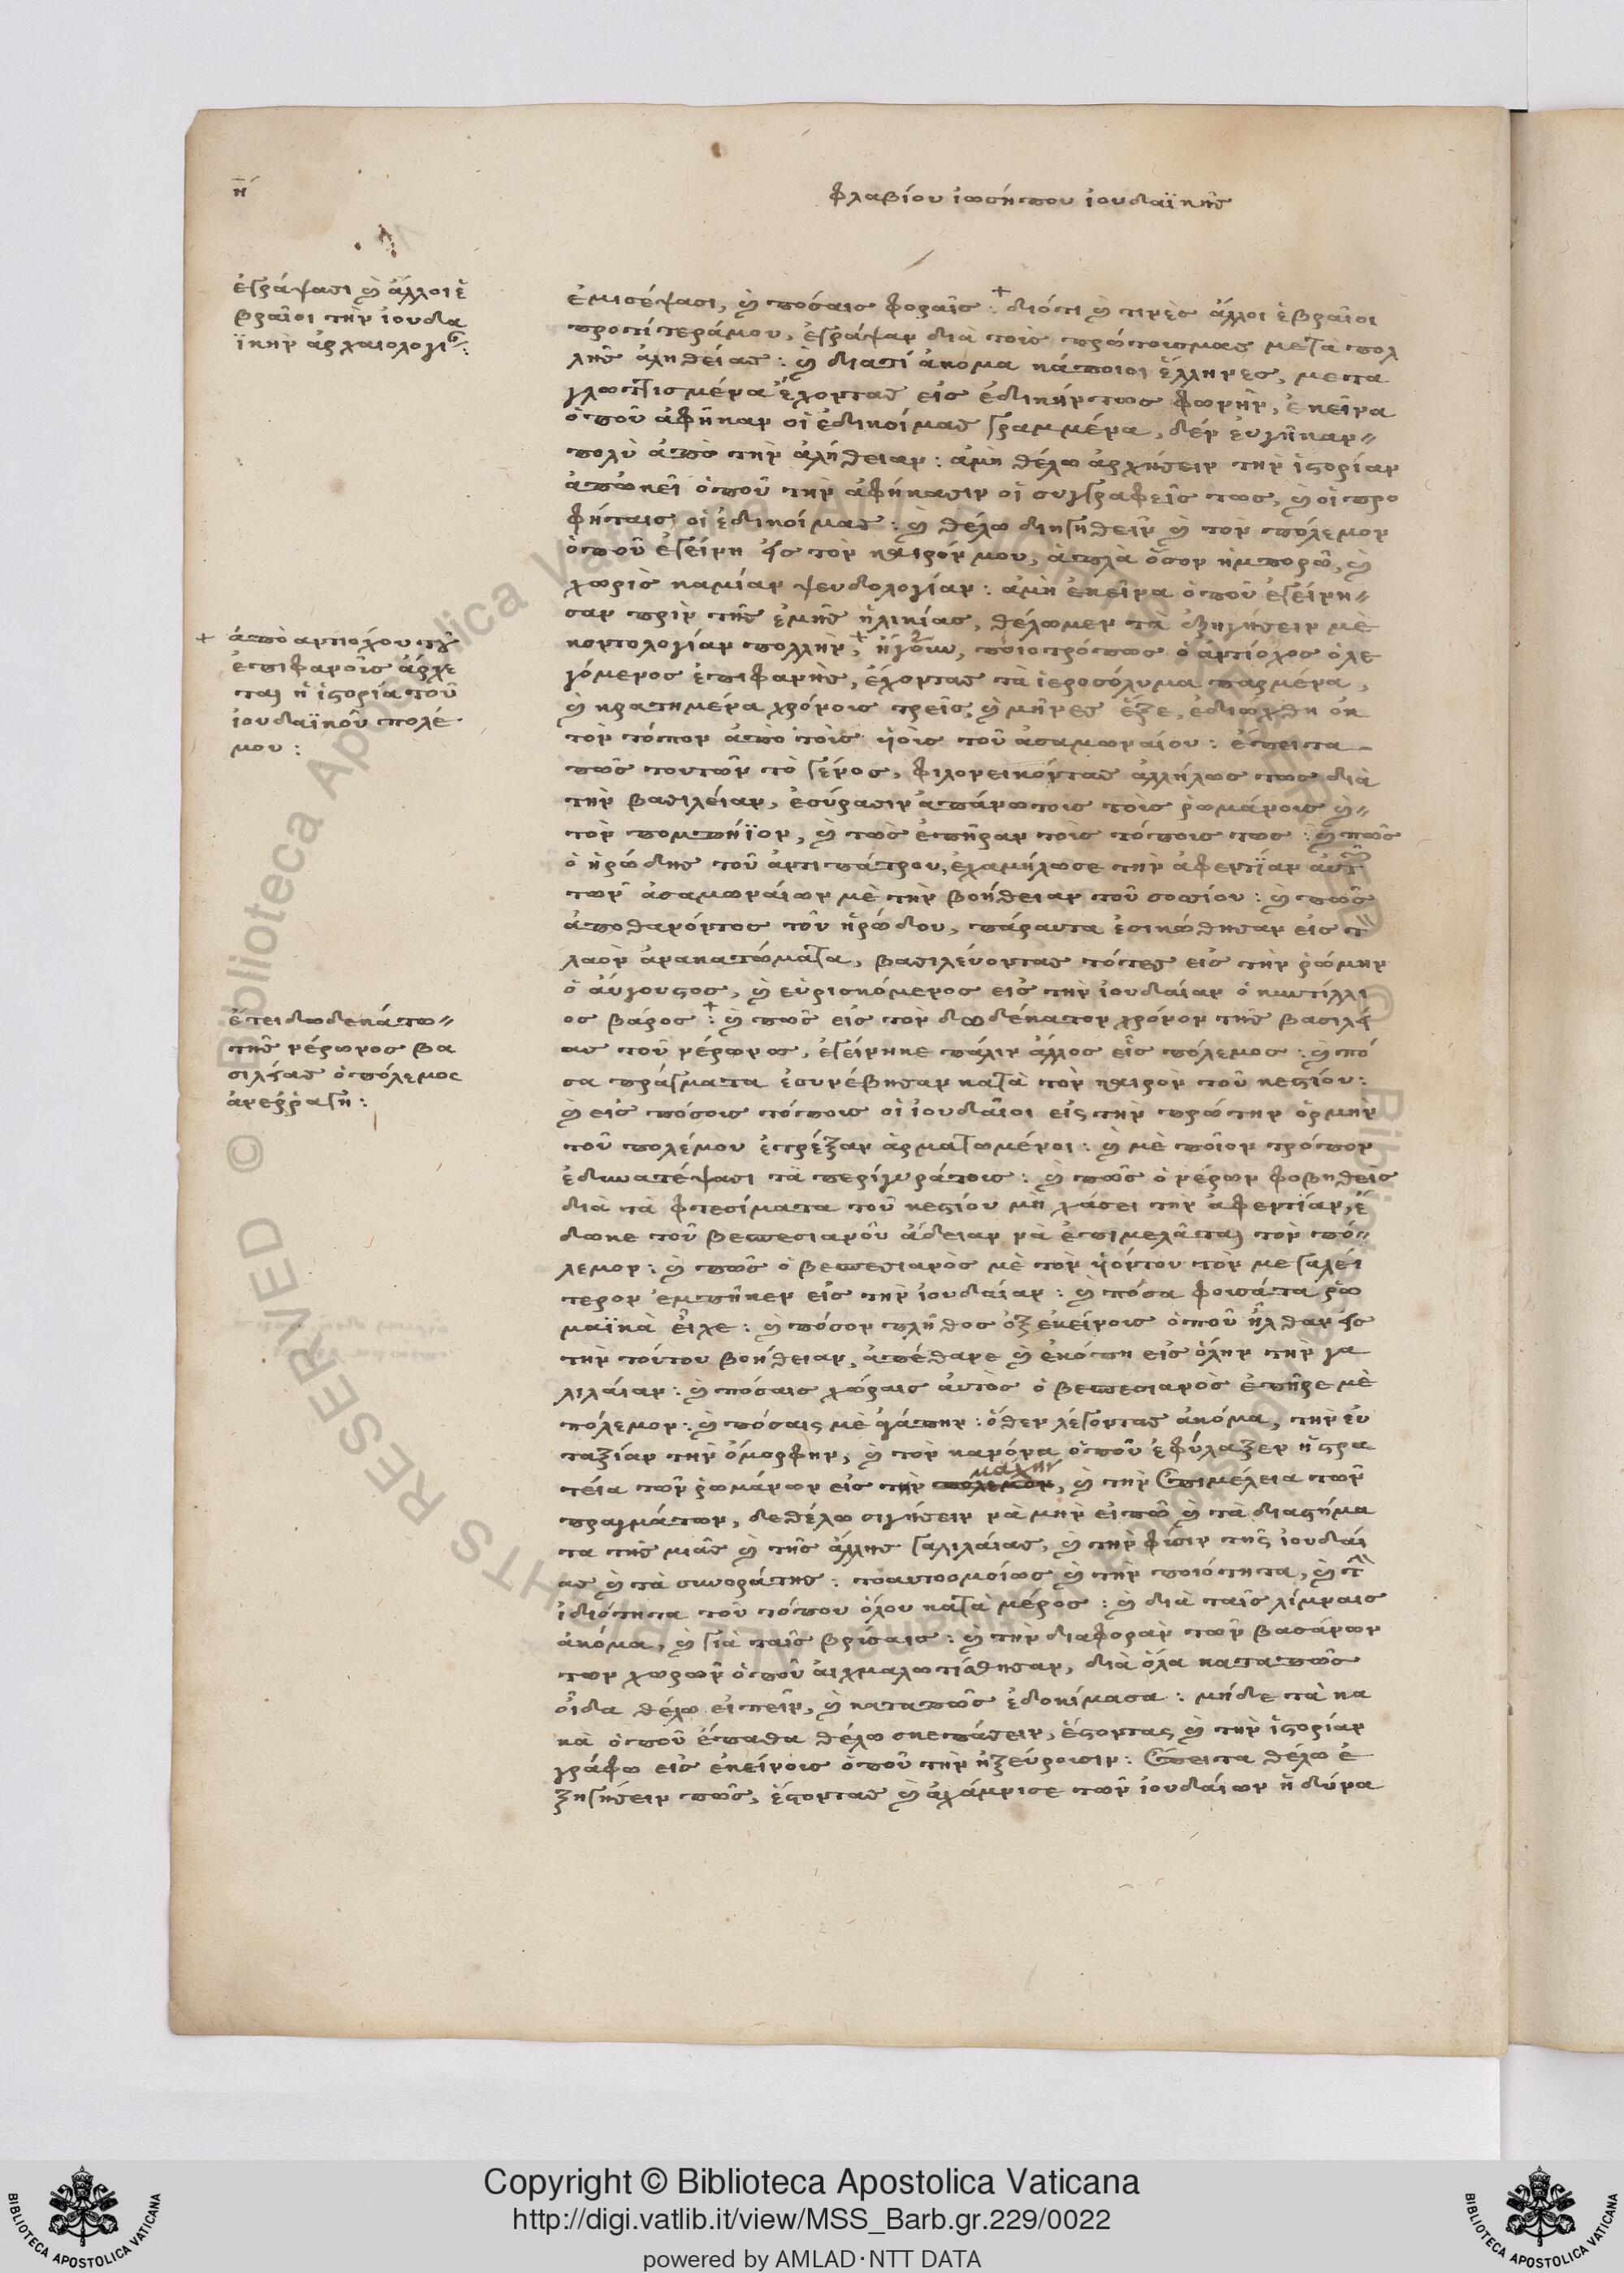 η΄
φλαβίου ἰωσήπου ἰουδαϊκῆς
ἐγράψασι καὶ ἄλλοι ἑ
βραῖοι τὴν ἰουδα
ϊκὴν ἀρχαιολογί
ἐμισέψασι, καὶ πόσαις φοραῖς :+ διότι καὶ τινὲς ἄλλοι ἑβραῖοι
προτίτεράμου, ἐγράψαν διὰ τοὶς πρώτοισμας μετὰ πολ
λῆς ἀληθείας : καὶ διατί ἀκομα κάποιοι ἕλληνες, μετα
γλωττισμένα ἔχοντας εἰς ἐδικήντως φωνὴν, ἐκεῖνα
ὁποῦ ἀφῆκαν οἱ ἐδικοίμας γραμμένα, δέν εὐγῆκαν
πολὺ ἀπὸ τὴν ἀλήθειαν : ἀμὴ θέλω ἀρχήσειν τὴν ἱστορίαν
ἀπὠκεῖ ὁποῦ τὴν ἀφήκασιν οἱ συγγραφεῖς τως, καὶ οἱ προ
φήταις οἱ ἐδικοίμας : καὶ θέλω διηγηθεῖν καὶ τὸν πόλεμον
ὁποῦ ἐγείνη εἰς τὸν καιρόν μου, ἁπλὰ ὅσον ἠμπορῶ, καὶ
χωρὶς καμίαν ψευδολογίαν : ἀμὴ ἐκεῖνα ὁποῦ ἐγείνη
σαν πρὶν τῆς ἐμῆς ἡλικίας, θέλωμεν τὰ ἐξηγήσειν μὲ
κοντολογίαν πολλὴν :+ ἤγουν, ποιοτρόπως ὁ ἀντίοχος ὁ λε
γόμενος ἐπιφανὴς, ἔχοντας τὰ ἱεροσόλυμα παρμένα,
καὶ κρατημένα χρόνοις τρεῖς, καὶ μῆνες ἕξε, ἐδιώχθη ἐκ
τὸν τόπον ἀπὸ τοὶς υἱοὶς τοῦ ἀσαμωναίου : ἔπειτα
+ ἀπὸ ἀντιόχου τοῦ
ἐπιφανοῦς ἄρχε
ται ἡ ἱστορία τοῦ
ἰουδαϊκοῦ πολέ
μου :
πῶς τουτῶν τὸ γένος, φιλονεικόντας ἀλλήλως τως διὰ
τὴν βασιλείαν, ἐσύρασιν ἀπάνωτοις τοὶς ῥωμάνοις καὶ
τὸν πομπήϊον, καὶ τὼς ἐπῆραν τοὶς τόποις τως : καὶ πῶς
ὁ ἡρώδης τοῦ ἀντιπάτρου, ἐχαμήλωσε τὴν ἀφεντίαν αὐτῶν
τῶν ἀσαμωναίων μὲ τὴν βοήθειαν τοῦ σοσίου : καὶ πῶς
ἀποθανόντος τοῦ ἡρώδου, πάραυτα ἐσικώθησαν εἰς τὸν
λαὸν ἀνακατώματα, βασιλεύοντας τότες εἰς τὴν ῥώμην
ὁ αὔγουστος, καὶ εὑρισκόμενος εἰς τὴν ἰουδαίαν ὁ κωτίλλι
ος βάρος :+ καὶ πῶς εἰς τὸν δωδέκατον χρόνον τῆς βασιλεί
ας τοῦ νέρωνος, ἐγείνηκε πάλιν ἄλλος εἷς πόλεμος : καὶ πό
σα πράγματα ἐσυνέβησαν κατὰ τὸν καιρὸν τοῦ κεστίου :
ἔτει δωδεκάτω
τῆς νέρωνος βα
σιλείας ὁ πόλεμος
ἀνεῤῥάγη :
καὶ εἰς πόσοις τόποις οἱ ἰουδαῖοι εἰς τὴν πρώτην ὁρμὴν
τοῦ πολέμου ἐτρέξαν ἁρματωμένοι : καὶ μὲ ποῖον τρόπον
ἐδιωατέψασι τὰ περίγυράτοις : καὶ πῶς ὁ νέρων φοβηθεὶς
διὰ τὰ φτεσίματα τοῦ κεστίου μὴ χάσει τὴν ἀφεντίαν, ἔ
δωκε τοῦ βεσπεσιανοῦ ἄδειαν νὰ ἐπιμελᾶται τὸν πό
λεμον : καὶ πῶς ὁ βεσπεσιανὸς μὲ τὸν υἱόντου τὸν μεγαλεί
τερον ἐμπῆκεν εἰς τὴν ἰουδαίαν : καὶ πόσα φουσάτα ῥω
μαϊκὰ εἶχε : καὶ πόσον πλῆθος ἐξ ἐκείνοις ὁποῦ ἦλθαν εἰς
τὴν τούτου βοήθειαν, ἀπέθανε καὶ ἐκόπη εἰς ὅλην τὴν γα
λιλαίαν : καὶ πόσαις χώραις αὐτὸς ὁ βεσπεσιανὸς ἐπῆρε μὲ
πόλεμον : καὶ πόσαις μὲ ἀγάπην : ὅθεν λέγοντας ἀκόμα, τὴν εὐ
ταξίαν τὴν ὄμορφην, καὶ τὸν κανόνα ὁποῦ ἐφύλαξεν ἡ στρα
τεία τῶν ῥωμάνων εἰς τὴν πόλεμον μάχην, καὶ τὴν ἐπιμέλεια τῶν
πραγμάτων, δε θέλω σιγήσειν νὰ μὴν εἰπῶ καὶ τὰ διαστήμα
τα τῆς μιᾶς καὶ τῆς ἄλλης γαλιλαίας, καὶ τὴν φύσιν τῆς ἰουδαί
ας καὶ τὰ συνοράτης : τοαυτοομοίως καὶ τὴν ποιότητα, καὶ τὴν
ἰδιότητα τοῦ τόπου ὅλου κατὰ μέρος : καὶ διὰ ταῖς λίμναις
ἀκόμα, καὶ γιὰ ταῖς βρίσαις : καὶ τὴν διαφορὰν τῶν βασάνων
των χωρῶν ὁποῦ αἰχμαλωτίσθησαν, διὰ ὅλα καταπῶς
οἶδα θέλω εἰπεῖν, καὶ καταπῶς ἐδοκίμασα : μήδε τὰ κα
κὰ ὁποῦ ἔπαθα θέλω σκεπάσειν, ἔστοντας καὶ τὴν ἱστορίαν
γράφω εἰς ἐκείνοις ὁποῦ τὴν ἠξεύρουσιν : ἔπειτα θέλω ἐ
ξηγήσειν πῶς, ἔστοντας καὶ ἀχάμνισε τῶν ἰουδαίων ἡ δύνα
Copyright © Biblioteca Apostolica Vaticana
http://digi.vatlib.it/view/MSS_Barb.gr.229/0022
powered by AMLAD·NTT DATA
BIBLIOTECA APOSTOLICA VATICANA
BIBLIOTECA APOSTOLICA VATICANA